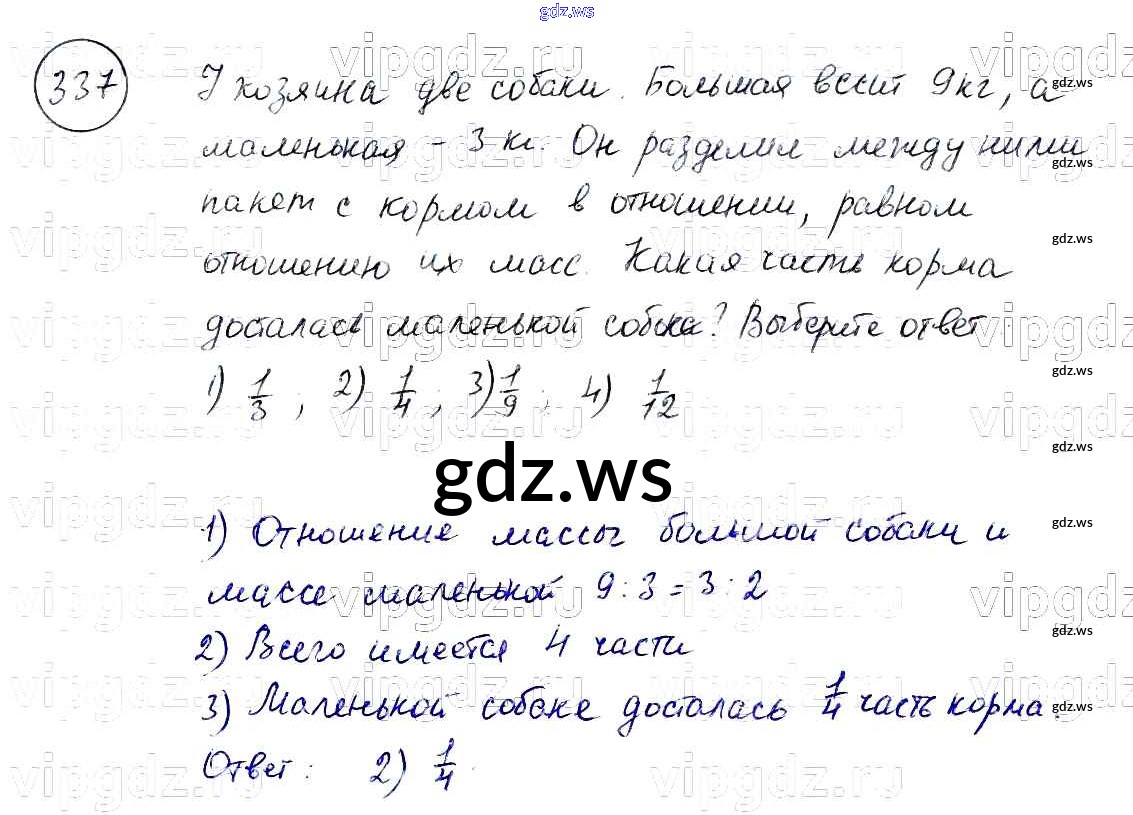 gdz.ws
337 У хозяина две собаки. Большая весит 9 кг, а
маленькая – 3 кг. Он разделил между ними
пакет с кормом в отношении, равном
отношению их масс. Какая часть корма
досталась маленькой собака? Выберите ответ
1) 1/3 ; 2) 1/4 ; 3) 1/9 ; 4) 1/12
gdz.ws
1) Отношение массы большой собаки и
массе маленькой 9 : 3 = 3 : 2
2) Всего имеется 4 части
3) Маленькой собаке досталась 1/4 часть корма.
Ответ: 2) 1/4.
vipgdz.ru
gdz.ws